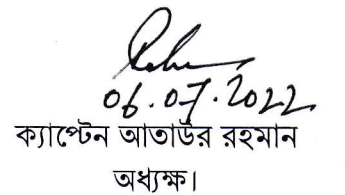 06.07.2022
ক্যাপ্টেন আতাউর রহমান
অধ্যক্ষ।